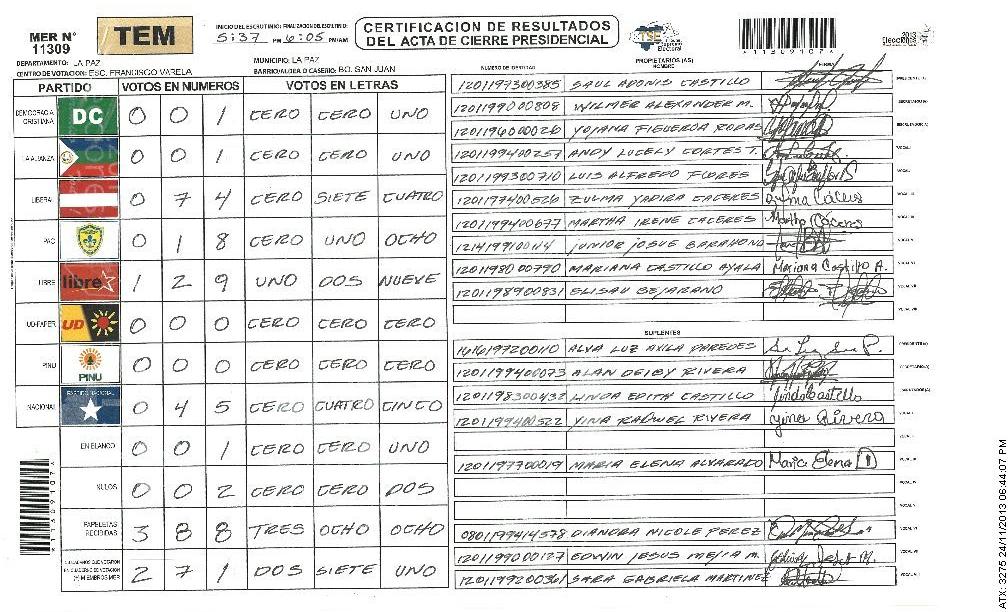 MER N° 11309
TEM
INICIO DEL ESCRUTINIO: FINALIZACION DEL ESCRUTINIO:
5:37 PM 6:05 PM/AM
CERTIFICACION DE RESULTADOS
DEL ACTA DE CIERRE PRESIDENCIAL
TSE
Tribunal Supremo Electoral
*113091074
2013
Elecciones
DEPARTAMENTO: LA PAZ
MUNICIPIO: LA PAZ
CENTRO DE VOTACION: ESC. FRANCISCO VARELA
BARRIO/ALDEA O CASERIO: BO. SAN JUAN
PARTIDO VOTOS EN NUMEROS VOTOS EN LETRAS
DEMOCRACIA CRISTIANA DC 0 0 1 CERO CERO UNO
LA ALIANZA 0 0 1 CERO CERO UNO
LIBERAL 0 7 4 CERO SIETE CUATRO
PAC 0 1 8 CERO UNO OCHO
LIBRE libre 1 2 9 UNO DOS NUEVE
UD-FAPER UD 0 0 0 CERO CERO CERO
PINU PINU 0 0 0 CERO CERO CERO
NACIONAL PARTIDO NACIONAL 0 4 5 CERO CUATRO CINCO
EN BLANCO 0 0 1 CERO CERO UNO
NULOS 0 0 2 CERO CERO DOS
PAPELETAS RECIBIDAS 3 8 8 TRES OCHO OCHO
CIUDADANOS QUE VOTARON EN CUADERNO DE VOTACION (+) MIEMBROS MER 2 7 1 DOS SIETE UNO
PROPIETARIOS (AS)
NUMERO DE IDENTIDAD NOMBRE FIRMA
1201197300385 SAUL ADONIS CASTILLO PRESIDENTE(A)
1201199000808 WILMER ALEXANDER M. SECRETARIO(A)
1201196000026 YOJANA FIGUEROA RODAS ESCRUTADOR(A)
1201199400257 ANDY LUCELY CORTES T. VOCAL I
1201199300710 LUIS ALFREDO FLORES
1201197400526 ZULMA YADIRA CACERES Zulma Cáceres
1201199400677 MARTHA IRENE CACERES Martha Cáceres
JUNIOR JOSUE BARAHONA
1201198000790 MARIANA CASTILLO AYALA Mariana Castillo A.
1201198900831 ELISAU BEJARANO
SUPLENTES
1416197200110 ALVA LUZ AVILA PAREDES PRESIDENTE(A)
1201199400073 ALAN DEIBY RIVERA SECRETARIO(A)
1201198300432 LINDA EDITH CASTILLO Linda Castillo ESCRUTADOR(A)
1201199400522 YINA RAQUEL RIVERA Yina Rivera VOCAL I
1201197700019 MARIA ELENA ALVARADO Maria Elena
DIANORA NICOLE PEREZ
1201199000127 EDWIN JESUS MEJIA M.
1201199200361 SARA GABRIELA MARTINEZ
*113091074
ATX: 3275 24/11/2013 06:44:07 PM